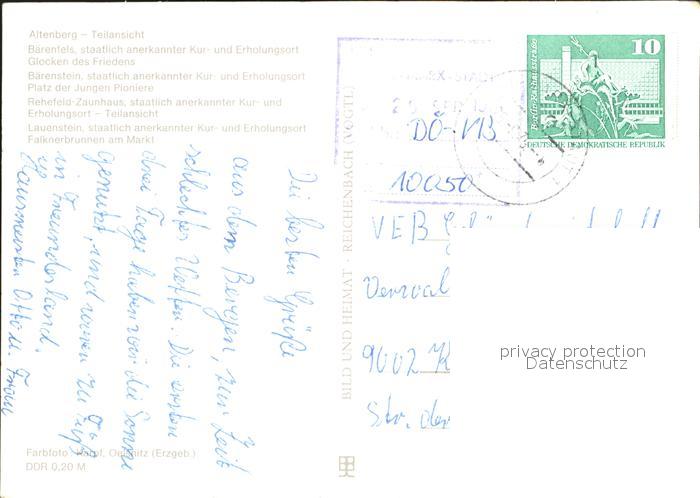 Altenberg – Teilansicht
Bärenfels, staatlich anerkannter Kur- und Erholungsort
Glocken des Friedens
Bärenstein, staatlich anerkannter Kur- und Erholungsort
Platz der Jungen Pioniere
Rehefeld-Zaunhaus, staatlich anerkannter Kur- und
Erholungsort – Teilansicht
Lauenstein, staatlich anerkannter Kur- und Erholungsort
Falknerbrunnen am Markt
Die besten Grüße
aus dem Bergen, zur Zeit
schlechtes Wetter. Die ersten
drei Tage haben wir die Sonne
genutzt, und waren zu Fuß
in Freundesland.
Hausmeister Otto u. Frau
Farbfoto: Kampf, Oelsnitz (Erzgeb.)
DDR 0,20 M
BILD UND HEIMAT · REICHENBACH (VOGTL)
10
DEUTSCHE DEMOKRATISCHE REPUBLIK
DÖ-VB
10050
VEB
Verwal
9002 K
Str. der
privacy protection
Datenschutz